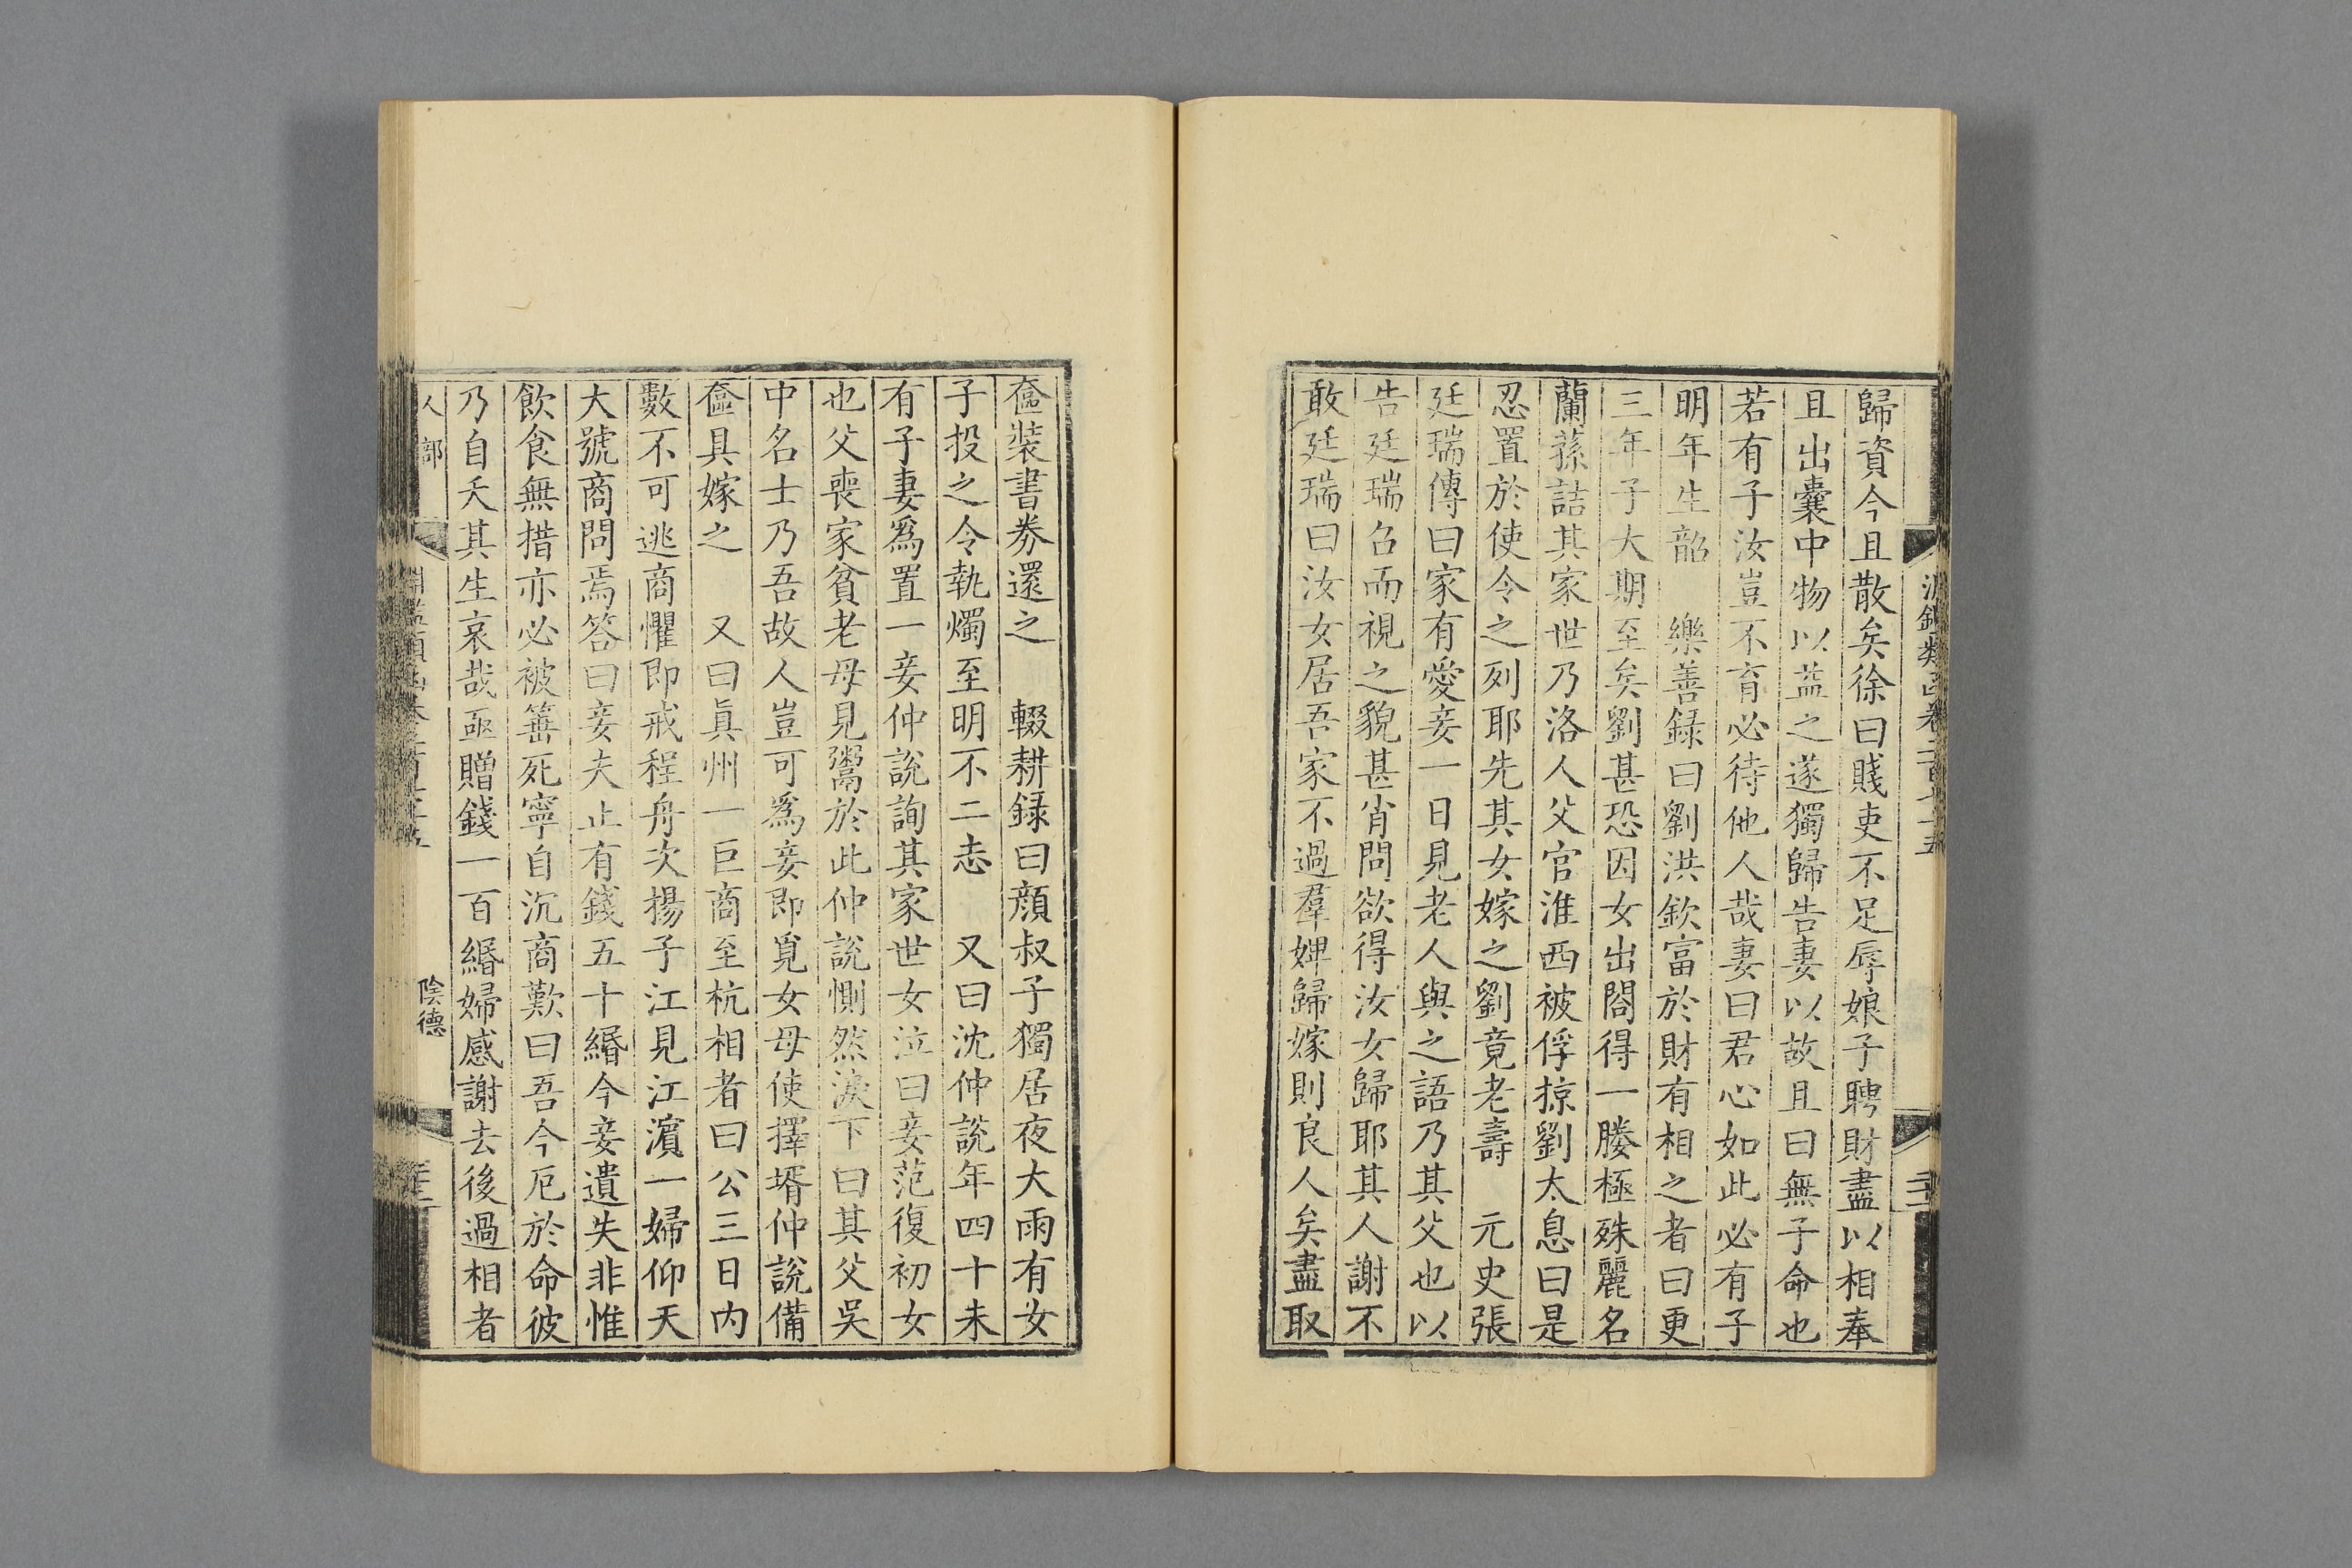 歸資今且散矣徐曰賤吏不足辱娘子聘財盡以相奉
且出囊中物以葢之遂獨歸告妻以故且曰無子命也
若有子汝豈不育必待他人哉妻曰君心如此必有子
明年生韶　樂善録曰劉洪欽富於財有相之者曰更
三年子大期至矣劉甚恐因女出閤得一媵極殊麗名
蘭蓀詰其家世乃洛人父官淮西被俘掠劉太息曰是
忍置於使令之列耶先其女嫁之劉竟老壽　元史張
廷瑞傳曰家有愛妾一日見老人與之語乃其父也以
告廷瑞召而視之貌甚肖問欲得汝女歸耶其人謝不
敢廷瑞曰汝女居吾家不過羣婢歸嫁則良人矣盡取
奩裝書券還之　輟耕録曰顔叔子獨居夜大雨有女
子投之令執燭至明不二志　又曰沈仲說年四十未
有子妻爲置一妾仲說詢其家世女泣曰妾范復初女
也父喪家貧老母見鬻於此仲說惻然淚下曰其父吳
中名士乃吾故人豈可爲妾即覓女母使擇壻仲說備
奩具嫁之　又曰眞州一巨商至杭相者曰公三日内
數不可逃商懼即戒程舟次揚子江見江濵一婦仰天
大號商問焉答曰妾夫止有錢五十緡今妾遺失非惟
飲食無措亦必被箠死寧自沉商歎曰吾今厄於命彼
乃自夭其生哀哉亟贈錢一百緡婦感謝去後過相者
人部
陰德